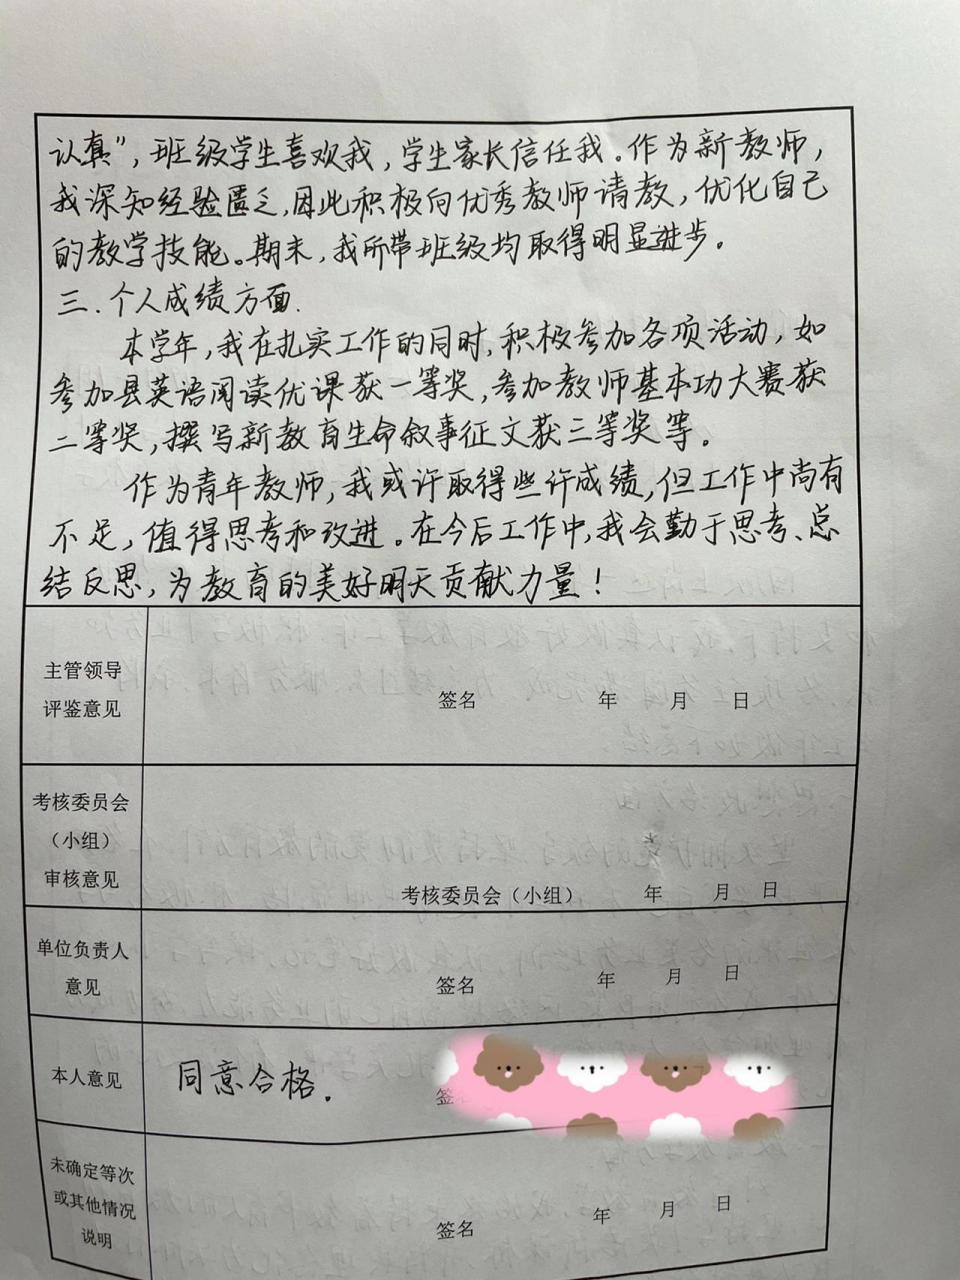 认真”，班级学生喜欢我，学生家长信任我。作为新教师，
我深知经验匮乏，因此积极向优秀教师请教，优化自己
的教学技能。期末，我所带班级均取得明显进步。
三.个人成绩方面.
本学年，我在扎实工作的同时，积极参加各项活动，如
参加县英语阅读优课获一等奖，参加教师基本功大赛获
二等奖，撰写新教育生命叙事征文获三等奖等。
作为青年教师，我或许取得些许成绩，但工作中尚有
不足，值得思考和改进。在今后工作中，我会勤于思考、总
结反思，为教育的美好明天贡献力量！
主管领导
评鉴意见
签名 年 月 日
考核委员会
（小组）
审核意见
考核委员会（小组） 年 月 日
单位负责人
意见
签名 年 月 日
本人意见
同意合格.
签
未确定等次
或其他情况
说明
签名 年 月 日